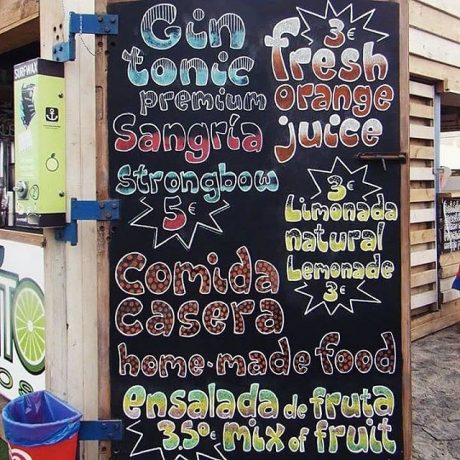 Gin
tonic
premium
Sangría
strongbow
5€
3€
fresh
orange
juice
3€
Limonada
natural
Lemonade
3€
Comida
casera
home·made food
ensalada de fruta
3.50€ mix of fruit
SURFWAX
TO
OS